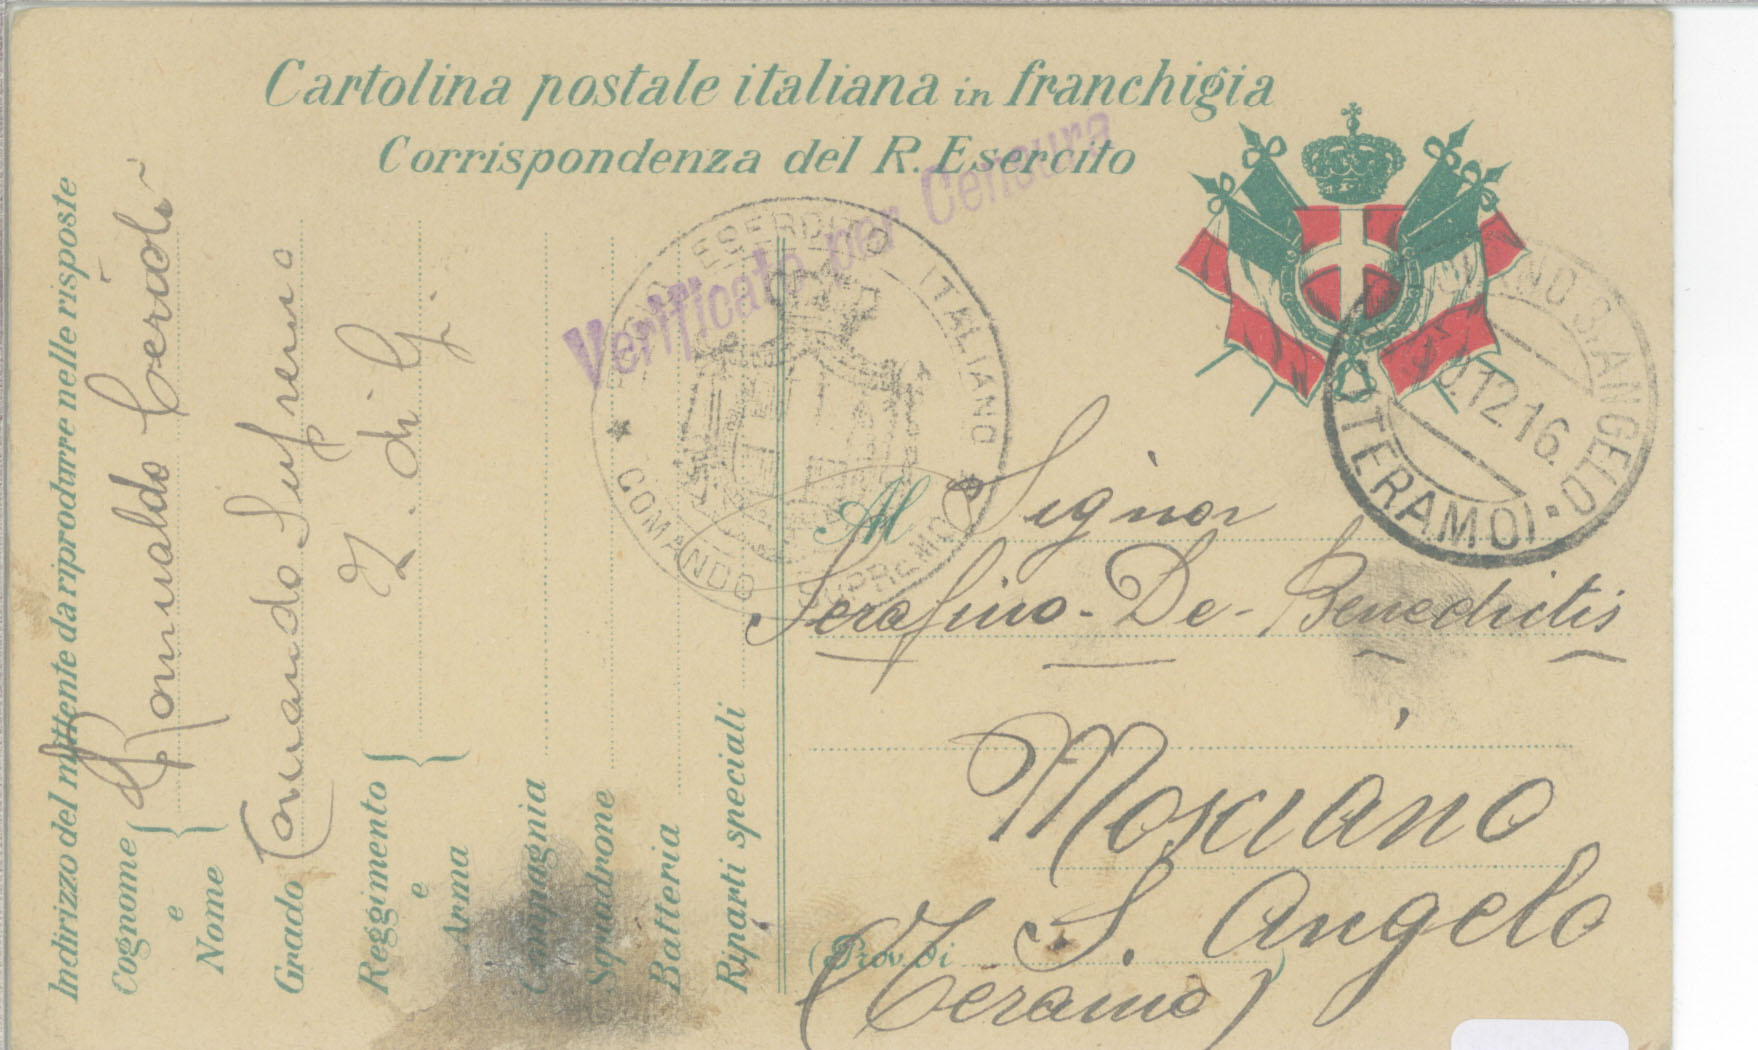 Cartolina postale italiana in franchigia
Corrispondenza del R. Esercito
Verificato per Censura
REGIO ESERCITO ITALIANO
★ COMANDO SUPREMO ★
MOSCIANO S. ANGELO
(TERAMO)
12 16
Indirizzo del mittente da riprodurre nelle risposte
Cognome e Nome
Romualdo Cerioli
Grado
Comando Supremo
Reggimento e Arma
Z. di G.
Compagnia
Squadrone
Batteria
Riparti speciali
Al Signor
Serafino - De - Benedictis
Mosciano
S. Angelo
(Prov. di
(Teramo)